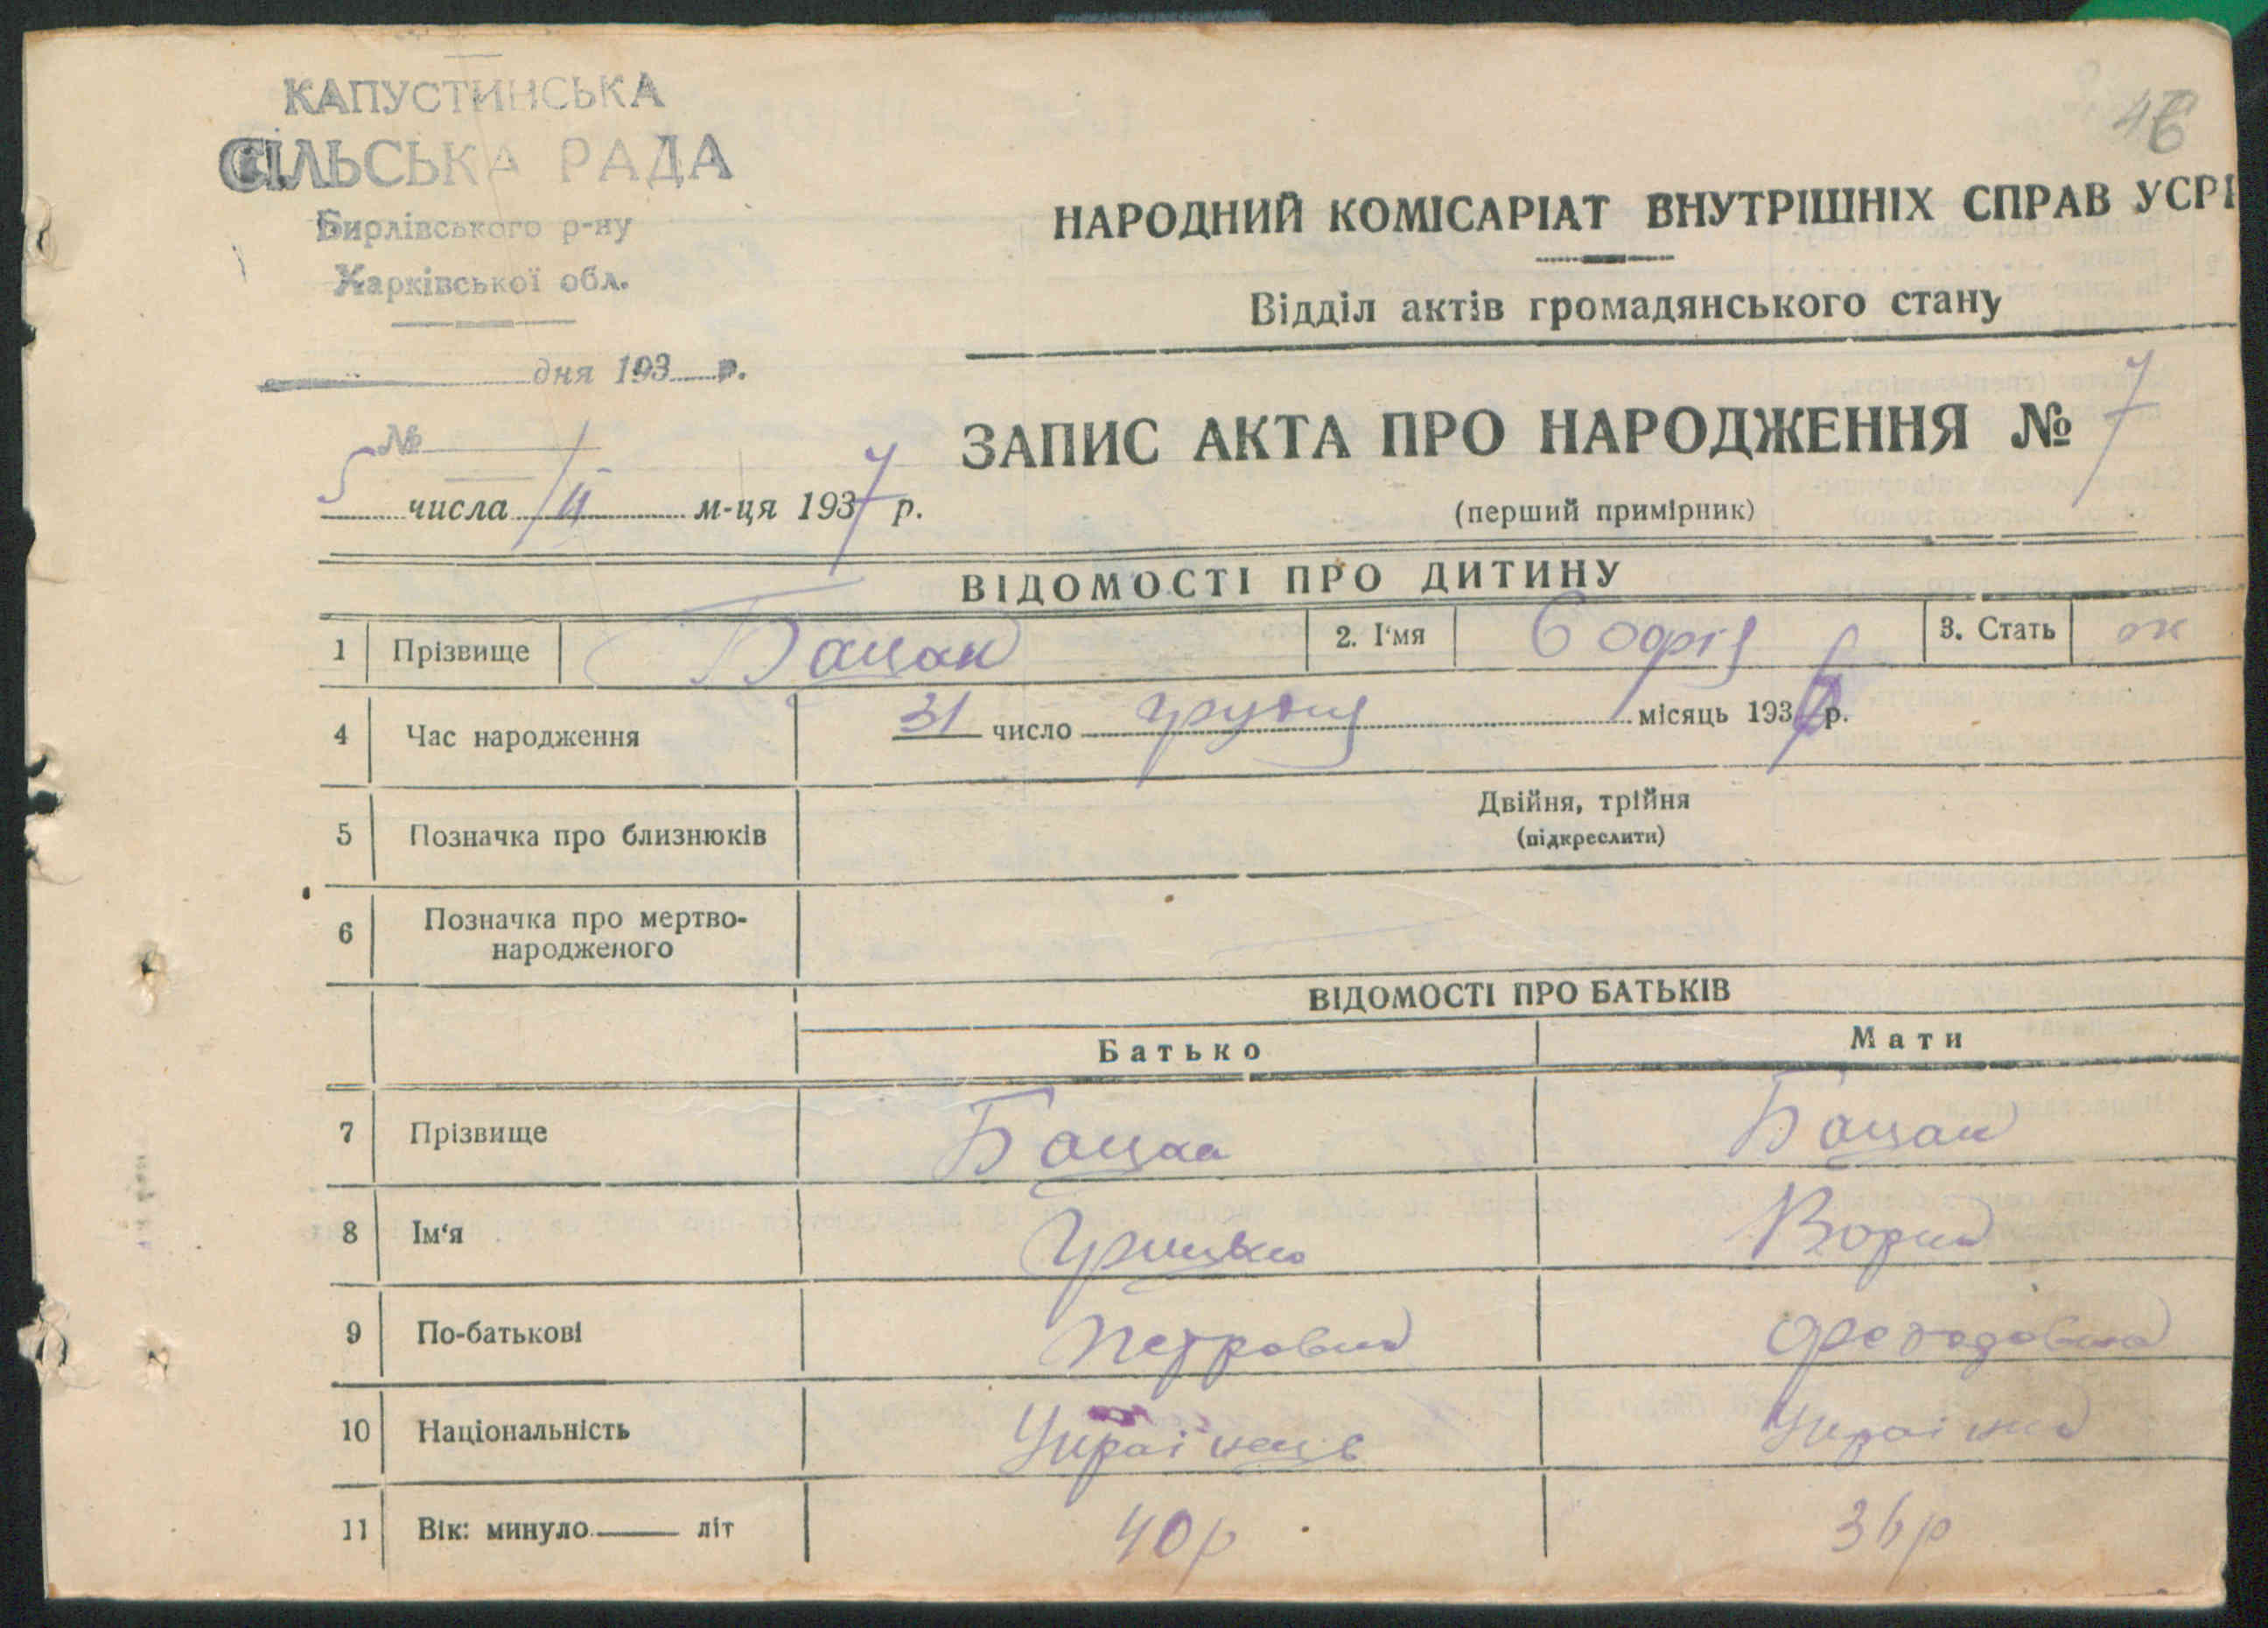 КАПУСТИНСЬКА
СІЛЬСЬКА РАДА
Бирлівського р-ну
Харківської обл.
дня 193 р.
№
46
НАРОДНИЙ КОМІСАРІАТ ВНУТРІШНІХ СПРАВ УСРР
Відділ актів громадянського стану
ЗАПИС АКТА ПРО НАРОДЖЕННЯ № 7
(перший примірник)
5 числа II м-ця 1937 р.
ВІДОМОСТІ ПРО ДИТИНУ
1 Прізвище Бацан 2. І'мя Софія 3. Стать ж
4 Час народження 31 число грудня місяць 1936 р.
5 Позначка про близнюків Двійня, трійня
(підкреслити)
6 Позначка про мертво-
народженого
ВІДОМОСТІ ПРО БАТЬКІВ
Батько Мати
7 Прізвище Бацан Бацан
8 Ім'я Грицько
9 По-батькові Петрович
10 Національність Українець Українка
11 Вік: минуло літ 40 р 36 р